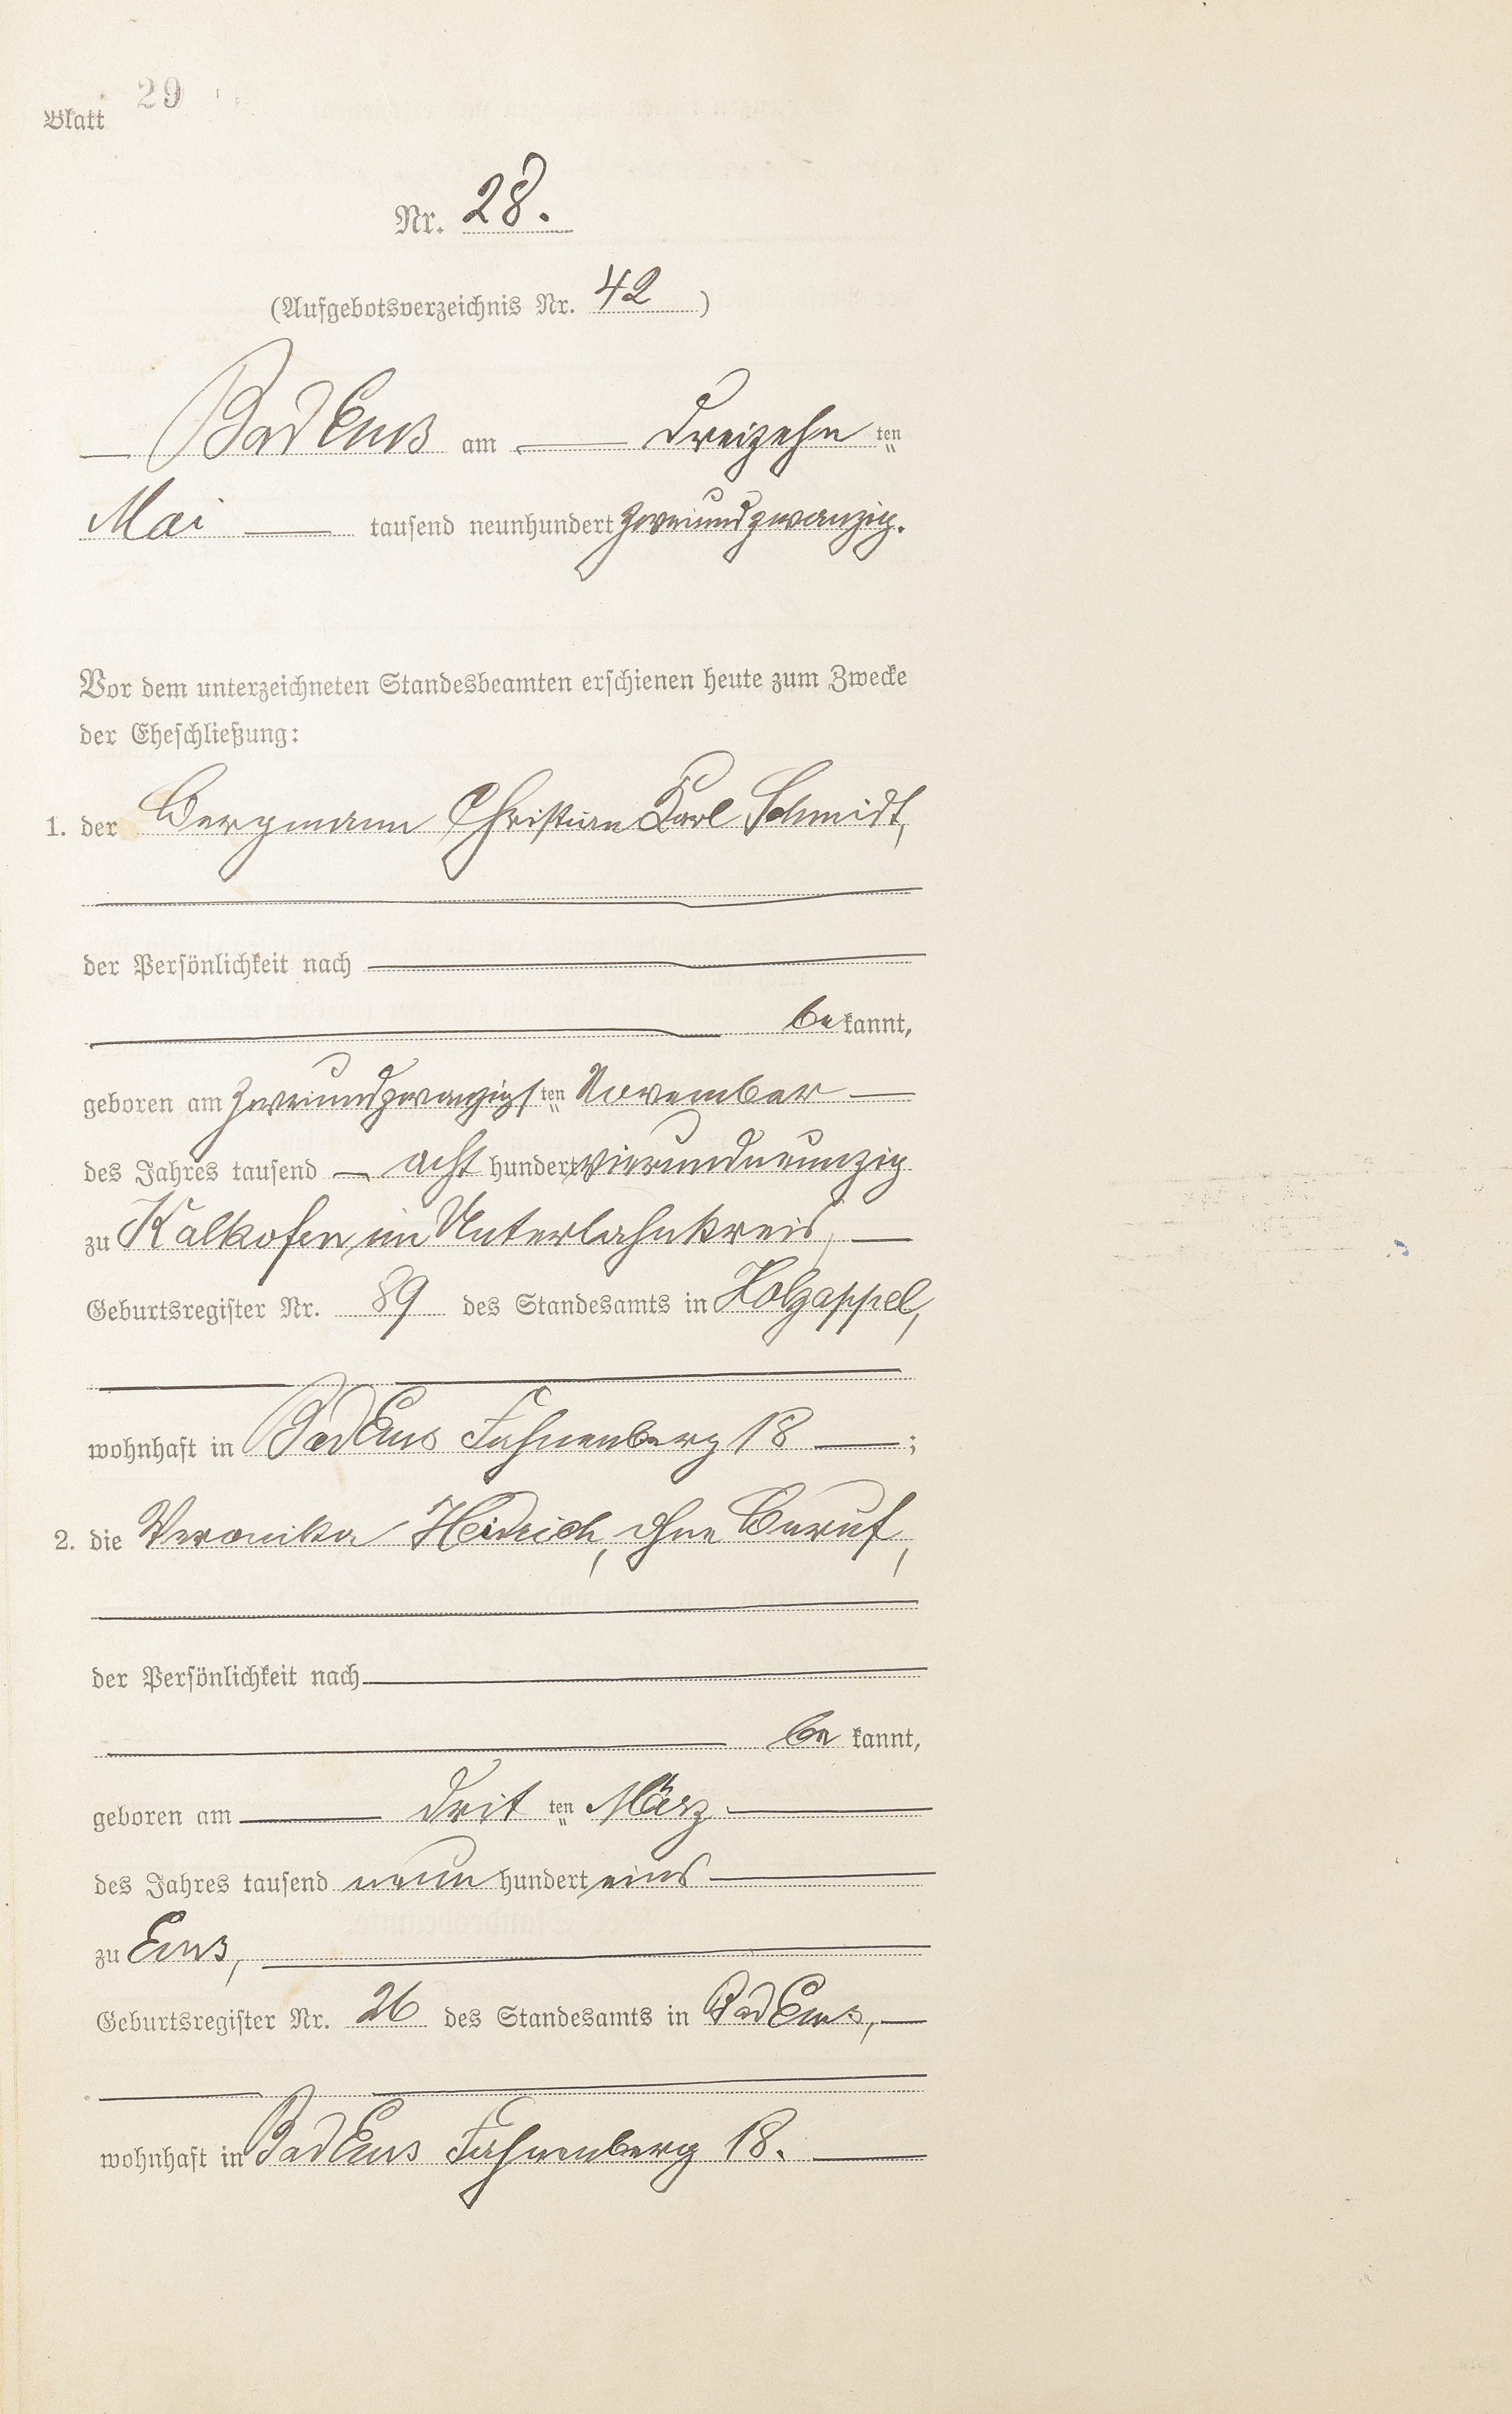 29
Blatt
Nr. 28.
(Aufgebotsverzeichnis Nr. 42)
Bad Ems am dreizehn ten
Mai tausend neunhundert zweiundzwanzig.
Vor dem unterzeichneten Standesbeamten erschienen heute zum Zwecke
der Eheschließung:
1. der Bergmann Christian Karl Schmidt,
der Persönlichkeit nach
be kannt,
geboren am zweiundzwanzigs ten November
des Jahres tausend acht hundert vierundneunzig
zu Kalkofen im Unterlahnkreis,
Geburtsregister Nr. 89 des Standesamts in Holzappel,
wohnhaft in Bad Ems Fahnenberg 18 ;
2. die Veronika ohne Beruf,
der Persönlichkeit nach
be kannt,
geboren am drit ten März
des Jahres tausend neun hundert eins
zu Ems,
Geburtsregister Nr. 26 des Standesamts in Bad Ems,
wohnhaft in Bad Ems Fahnenberg 18.